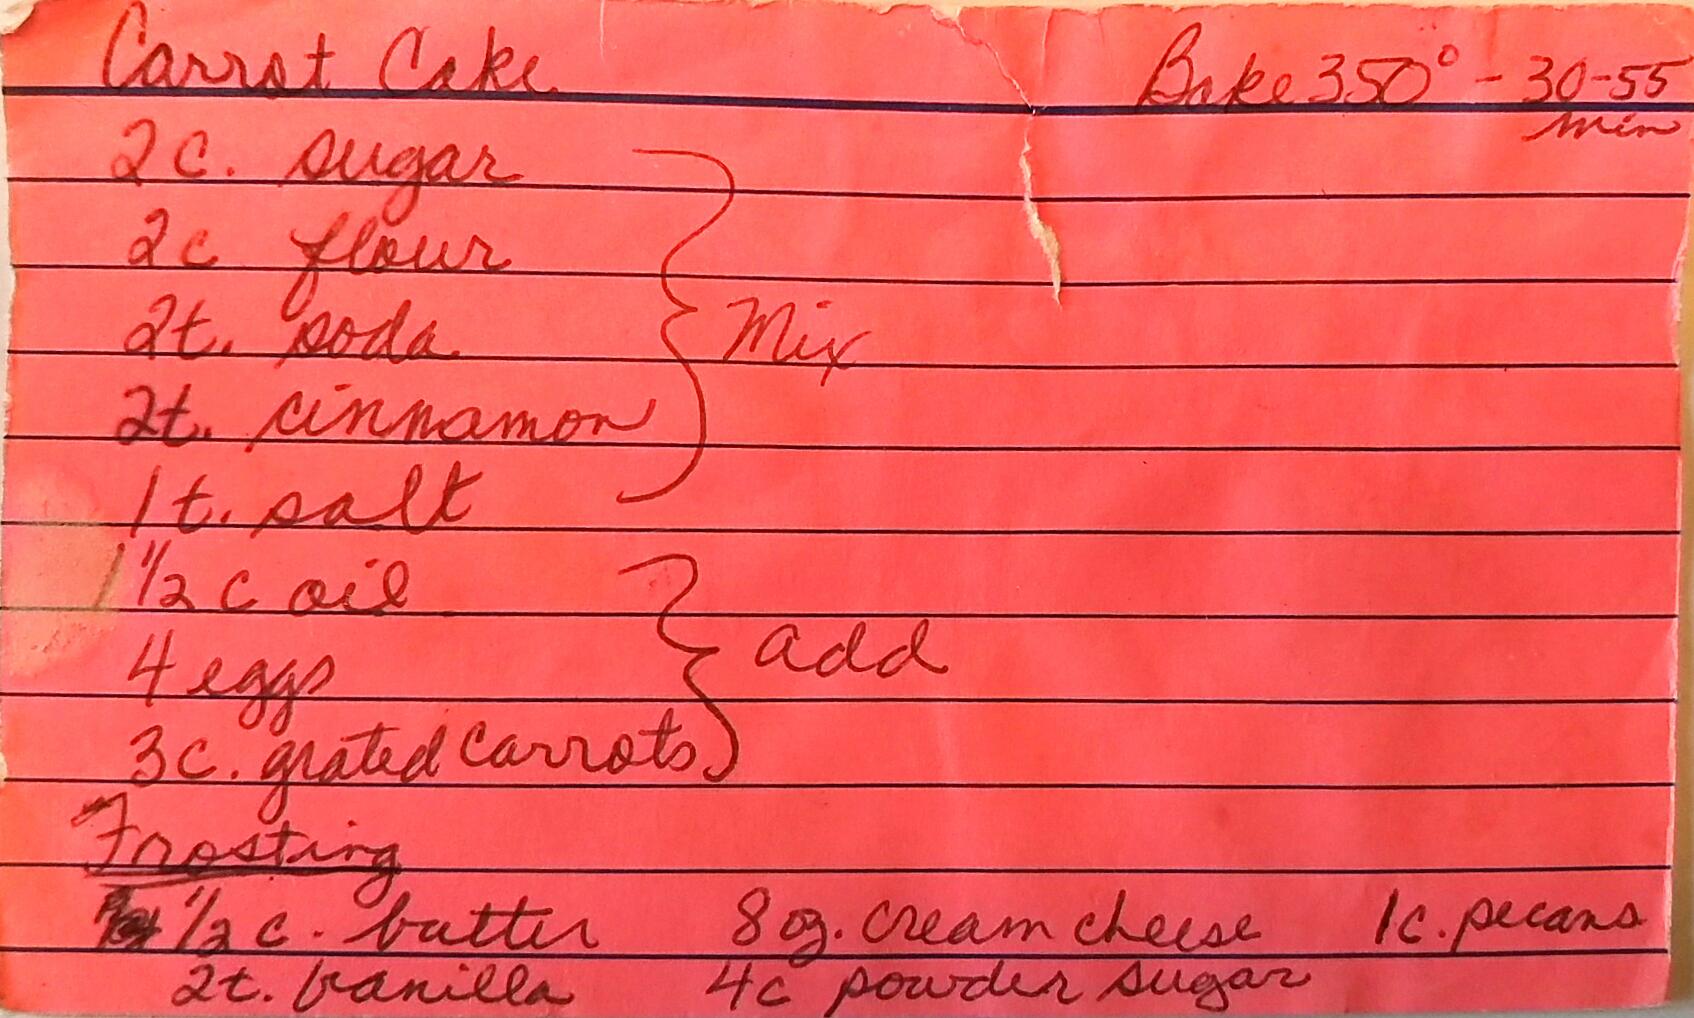 Carrot Cake Bake 350° - 30-55 min
2 c. sugar
2 c flour
2t. soda Mix
2t. cinnamon
1 t. salt
1 1/2 c oil
4 eggs add
3c. grated carrots
Frosting
1/2 c. butter 8 oz. cream cheese 1c. pecans
2t. vanilla 4c powder sugar